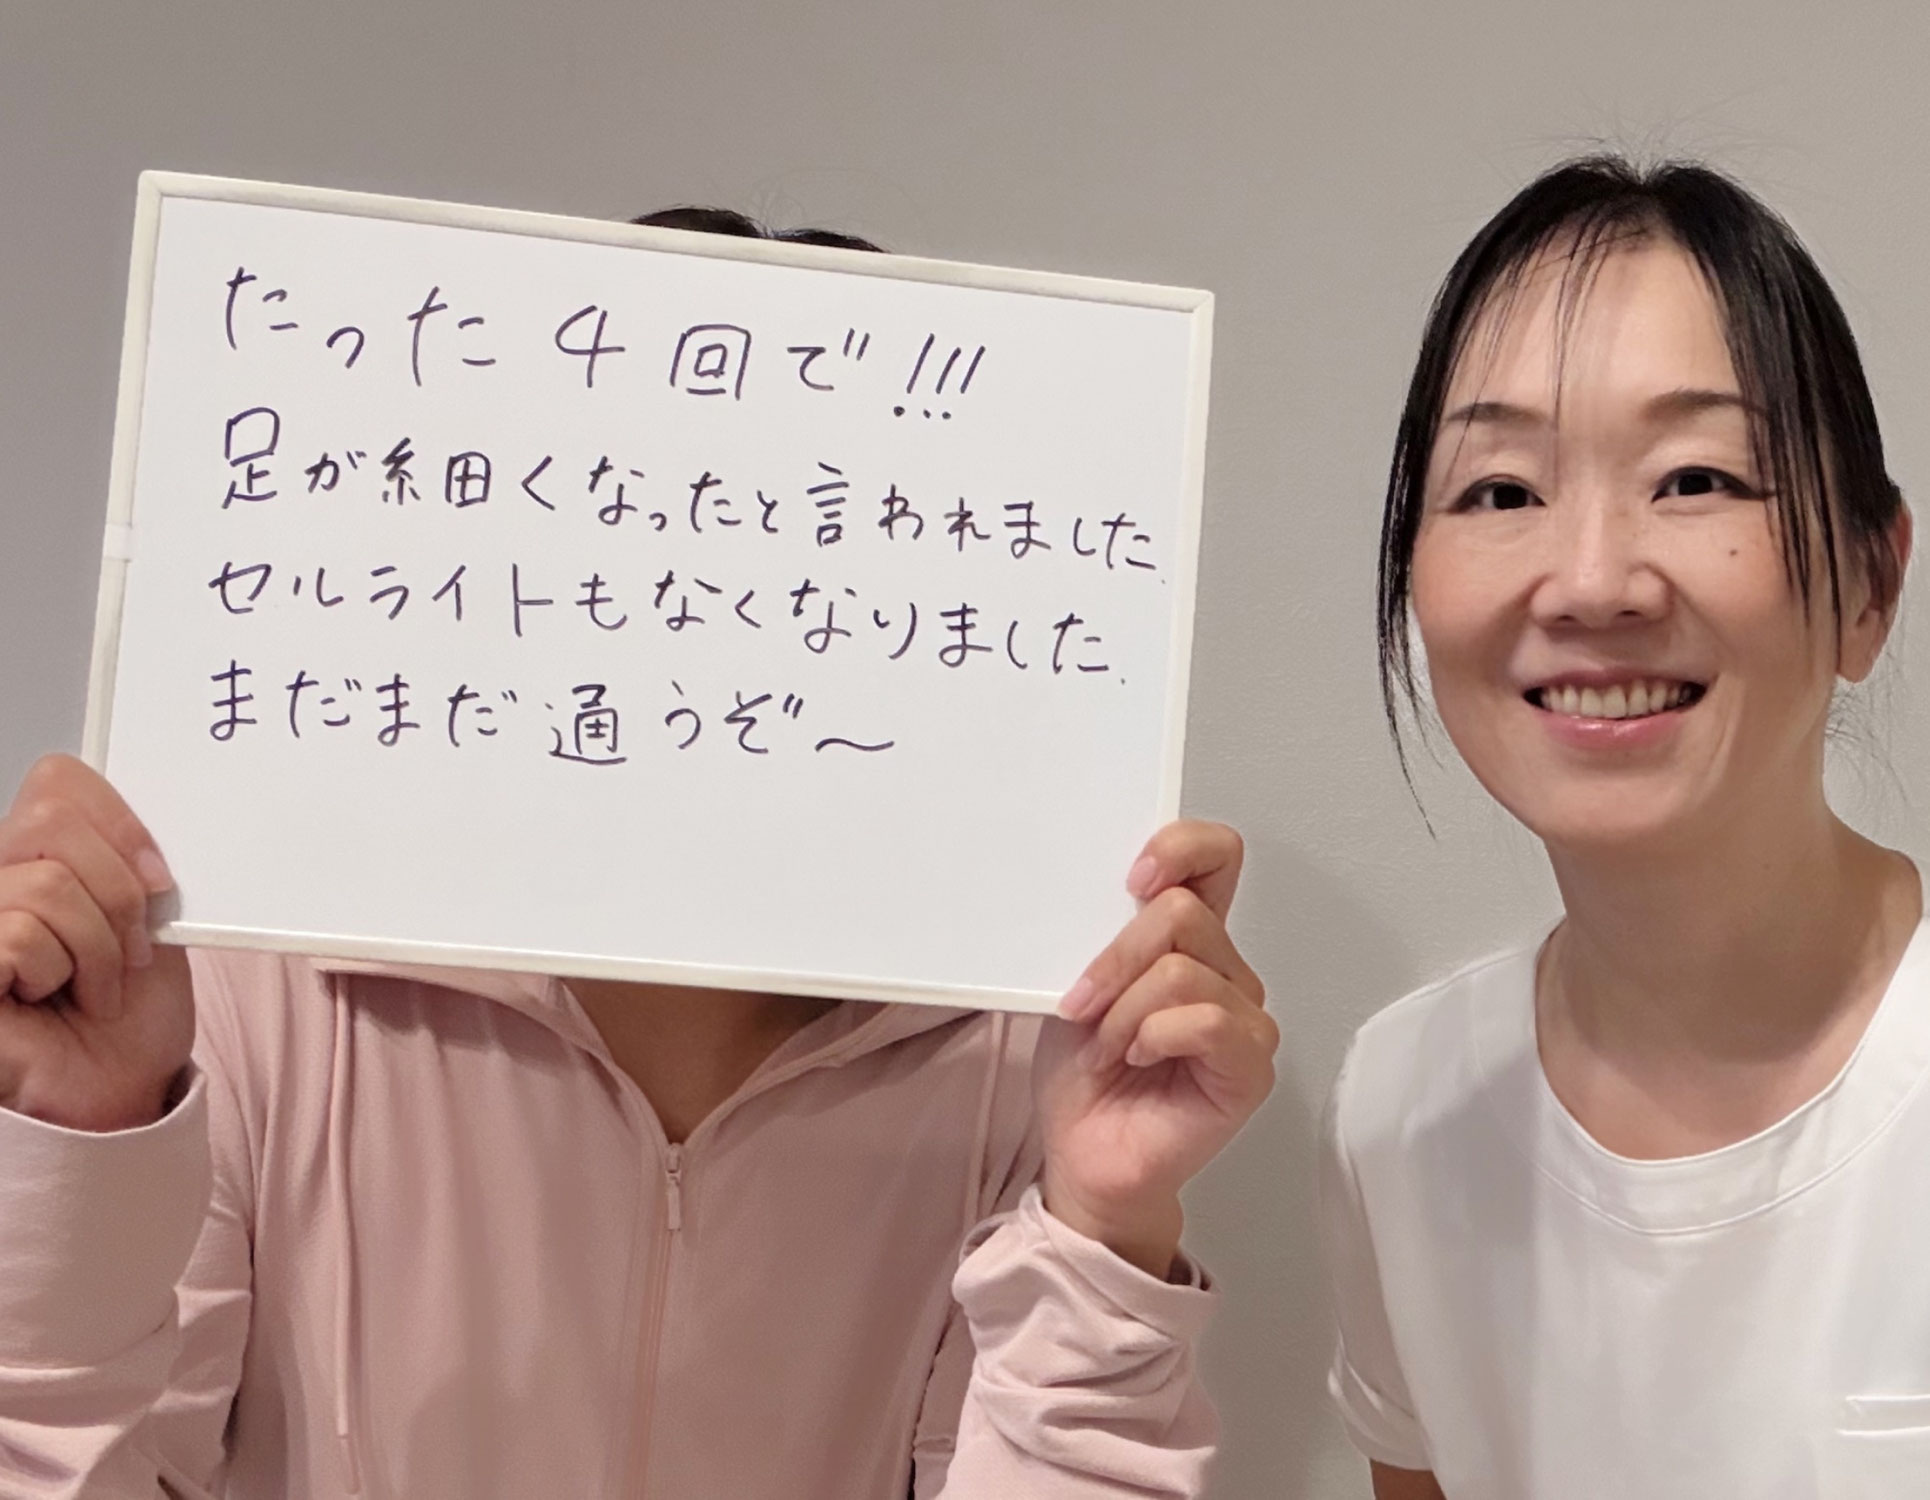 たった4回で!!!
足が細くなったと言われました.
セルライトもなくなりました.
まだまだ通うぞ〜